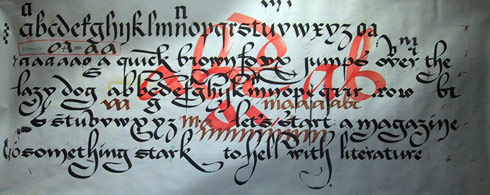 a n
abcdefghijklmnopqrstuvwxyz oa
oa aa
aaaaaao a quick brown fox jumps over the
lazy dog abbcdefghijklmnop qrir row bt
s stuvvwxyz let's start a magazine
something stark to hell with literature